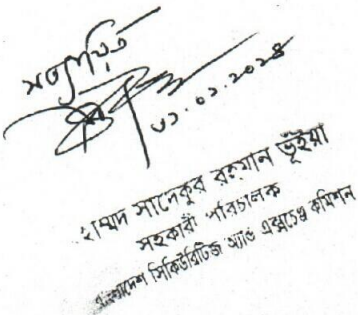 সত্যায়িত
৩১.০১.২০২৪
হাম্মদ সাদেকুর রহমান ভূঁইয়া
সহকারী পরিচালক
বাংলাদেশ সিকিউরিটিজ অ্যান্ড এক্সচেঞ্জ কমিশন